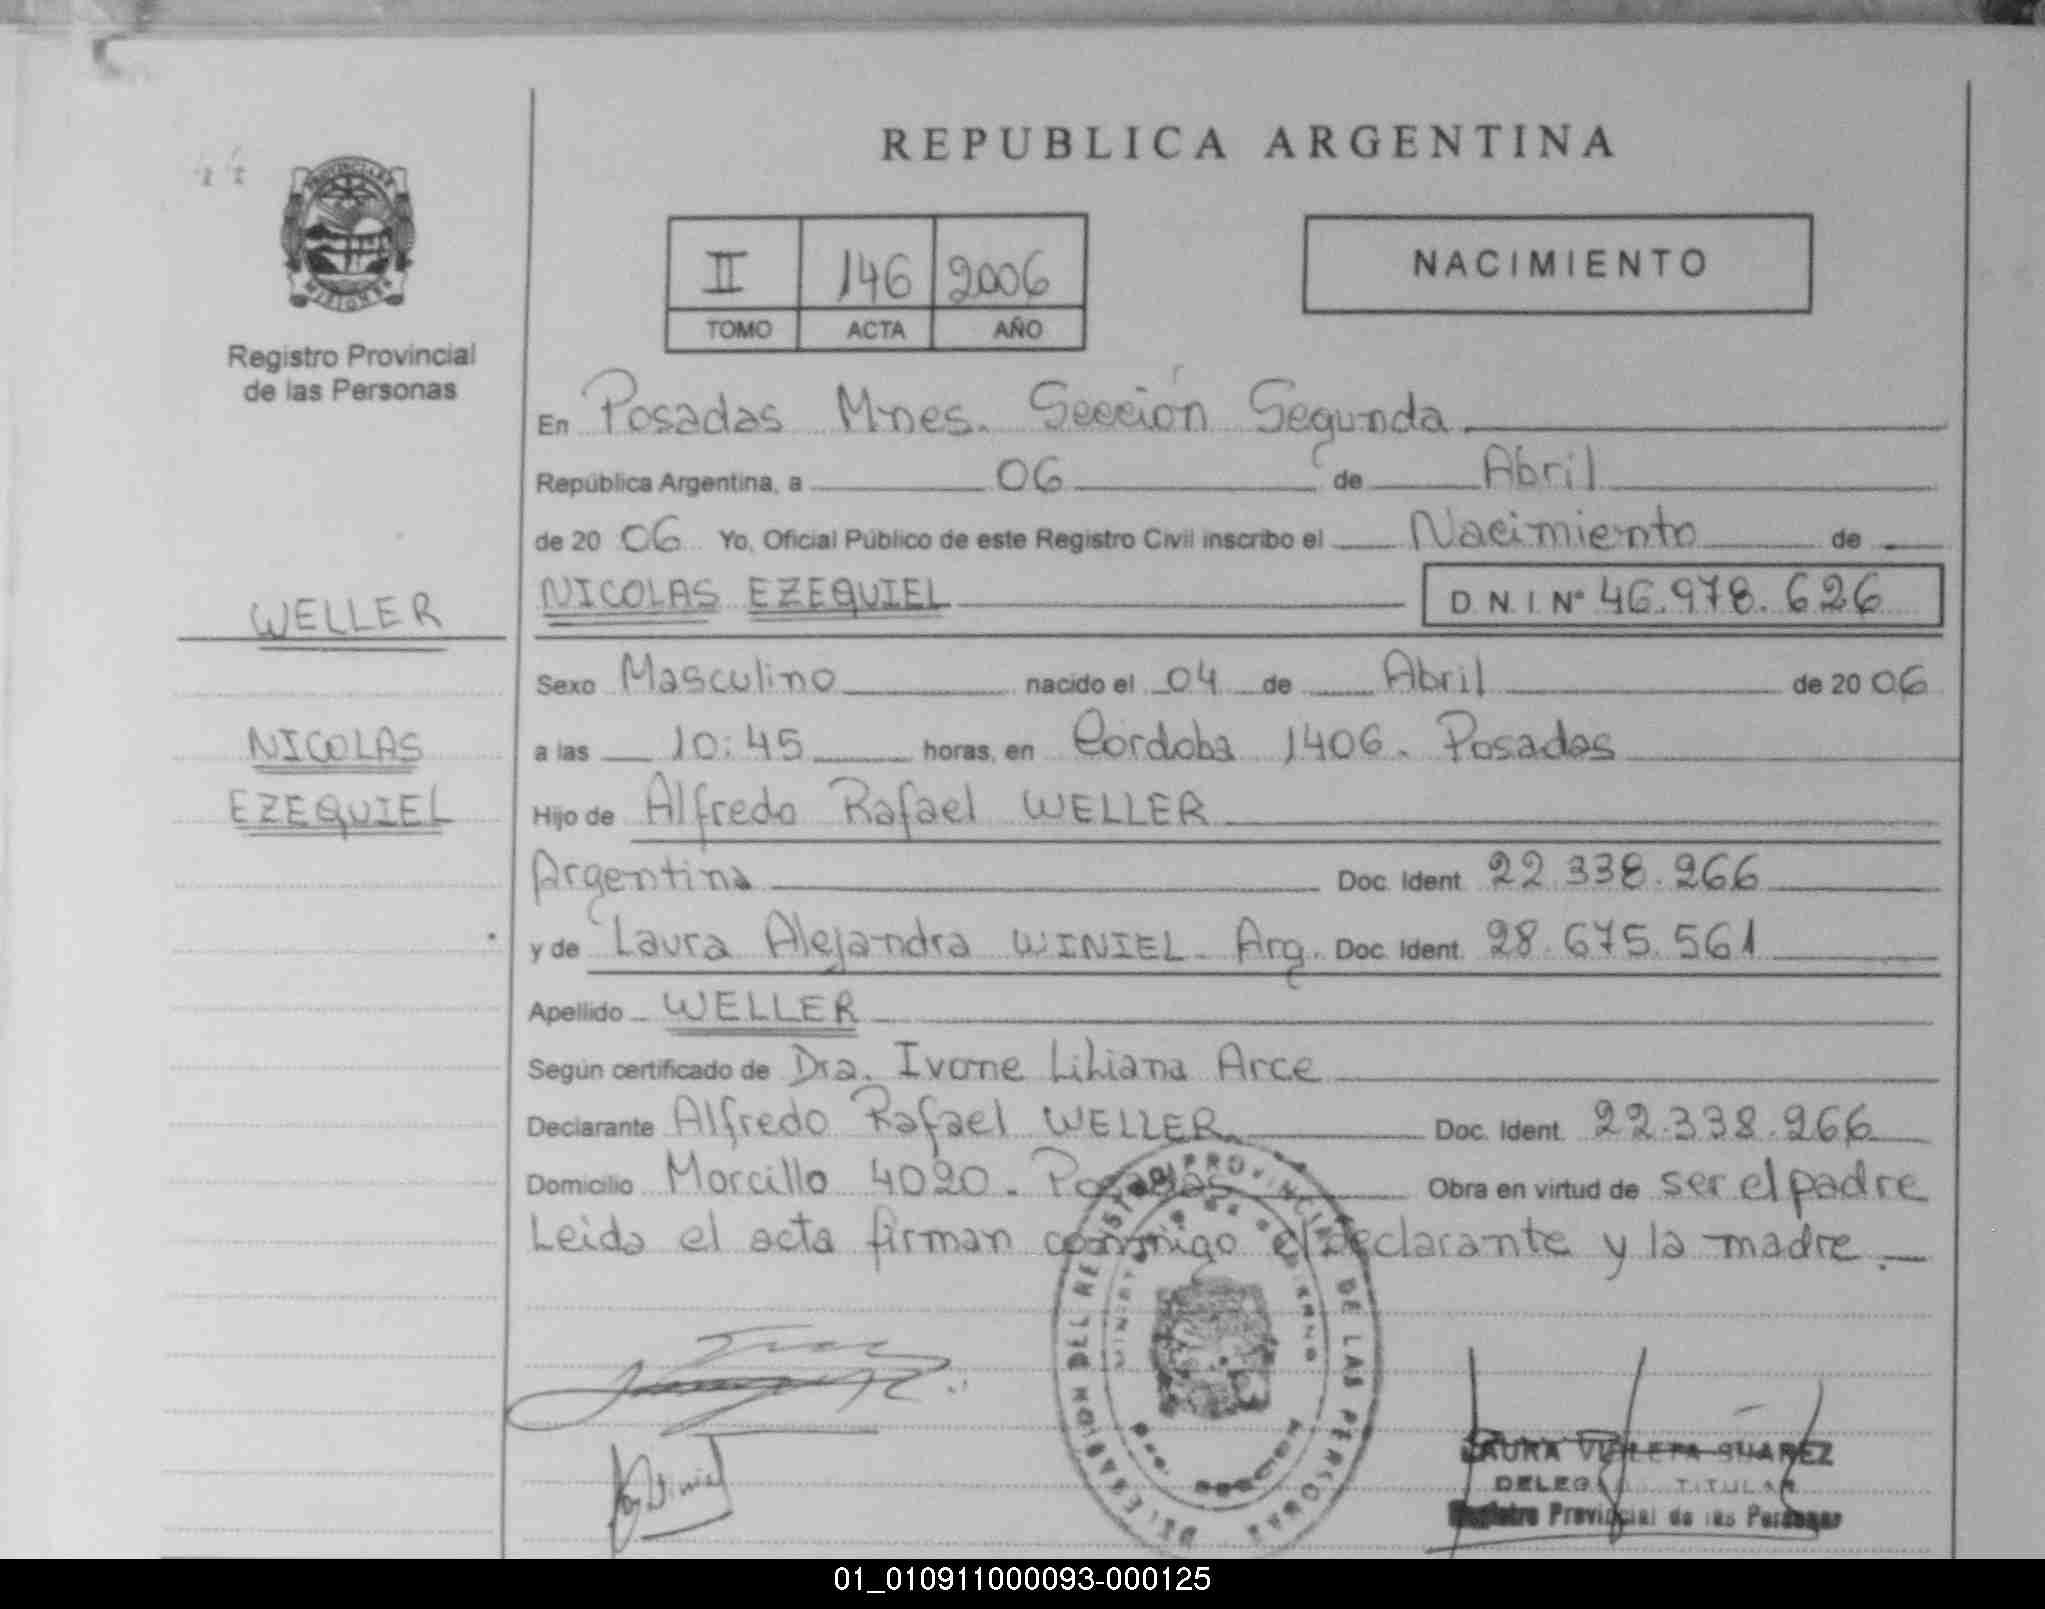 REPUBLICA ARGENTINA
PROVINCIA DE
MISIONES
Registro Provincial
de las Personas
II 146 2006
TOMO ACTA AÑO
NACIMIENTO
En Posadas Mnes. Sección Segunda
República Argentina, a 06 de Abril
de 20 06 Yo, Oficial Público de este Registro Civil inscribo el Nacimiento de
WELLER
NICOLAS EZEQUIEL D.N.I. Nº 46.978.626
Sexo Masculino nacido el 04 de Abril de 20 06
NICOLAS
a las 10:45 horas, en Cordoba 1406. Posadas
EZEQUIEL
Hijo de Alfredo Rafael WELLER
Argentina Doc. Ident. 22.338.966
y de Laura Alejandra WINIEL Arg. Doc. Ident. 28.675.561
Apellido WELLER
Según certificado de Dra. Ivone Liliana Arce
Declarante Alfredo Rafael WELLER Doc. Ident. 22.338.966
Domicilio Morcillo 4020. Posadas Obra en virtud de ser el padre
Leida el acta firman conmigo el declarante y la madre.
DELEGACION DEL REGISTRO PROVINCIAL DE LAS PERSONAS
LAURA VIOLETA SUAREZ
DELEGADA TITULAR
Registro Provincial de las Personas
01_010911000093-000125